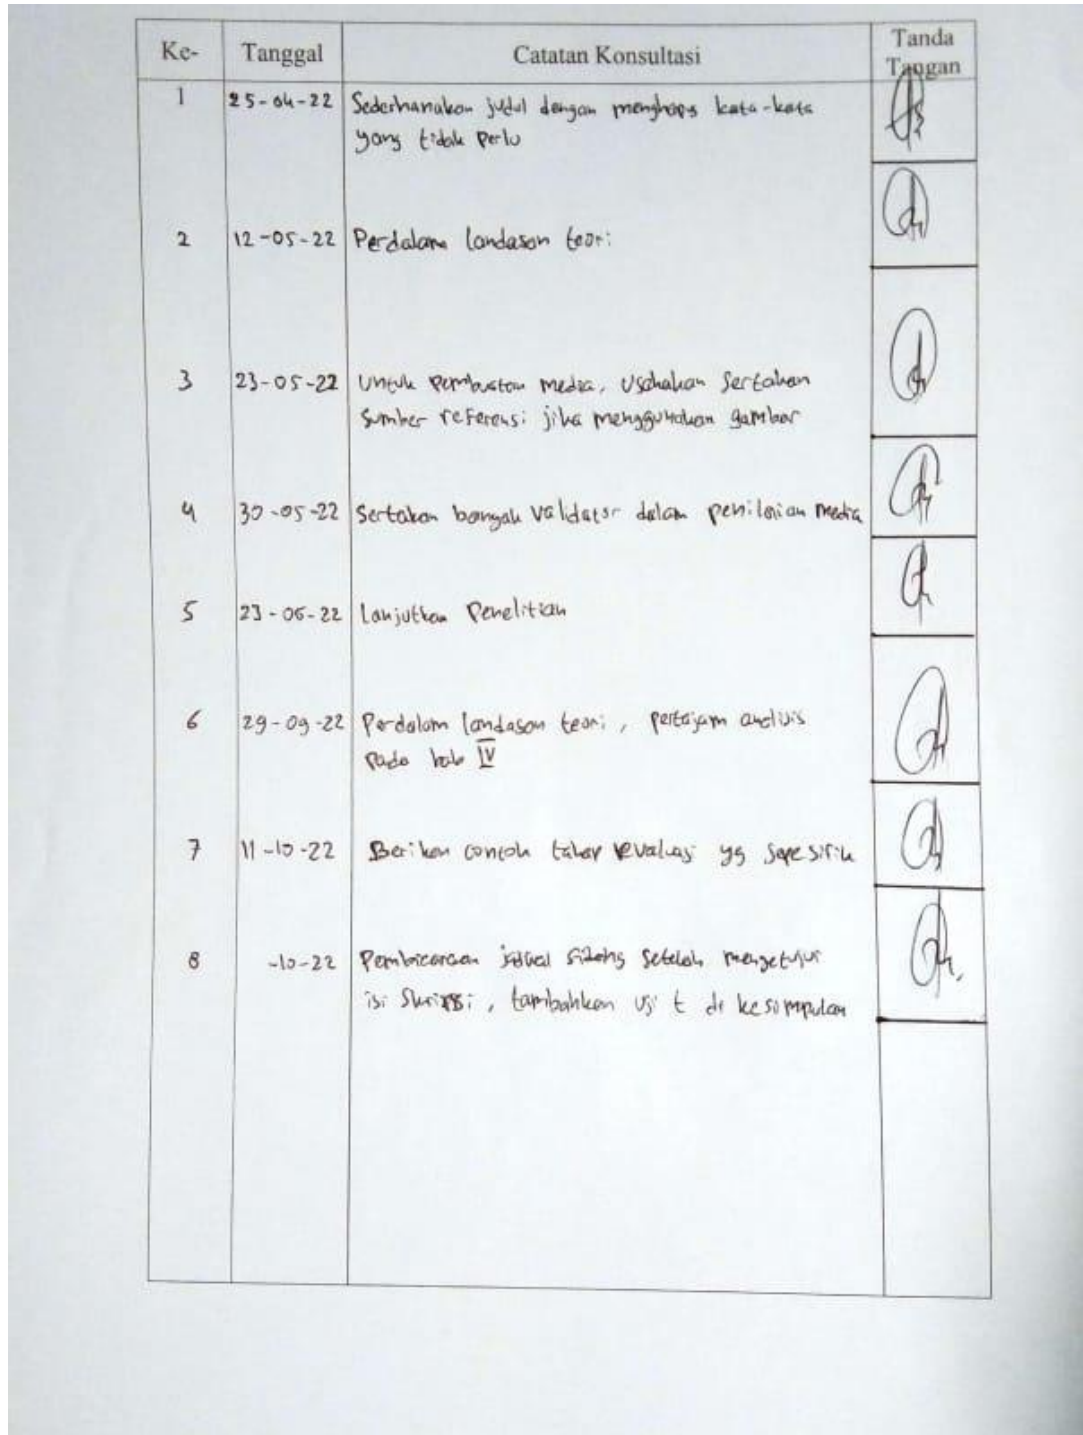 Ke- Tanggal Catatan Konsultasi Tanda Tangan
1 25-04-22 Sederhanakan judul dengan menghapus kata-kata
yang tidak perlu
2 12-05-22 Perdalam landasan teori
3 23-05-22 Untuk pembuatan media, usahakan sertakan
sumber referensi jika menggunakan gambar
4 30-05-22 Sertakan banyak validator dalam penilaian media
5 23-06-22 Lanjutkan Penelitian
6 29-09-22 Perdalam landasan teori, pertajam analisis
pada bab IV
7 11-10-22 Berikan contoh tahap evaluasi yg sepesifik
8 -10-22 Pembicaraan jadwal sidang setelah mengetujui
isi Skripsi, tambahkan uji t di kesimpulan